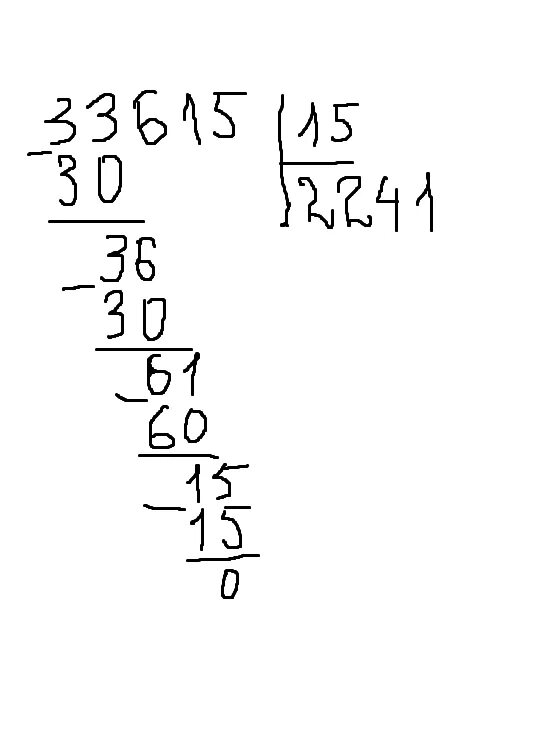 33615 | 15
- 30 | 2241
36
- 30
61
- 60
15
- 15
0